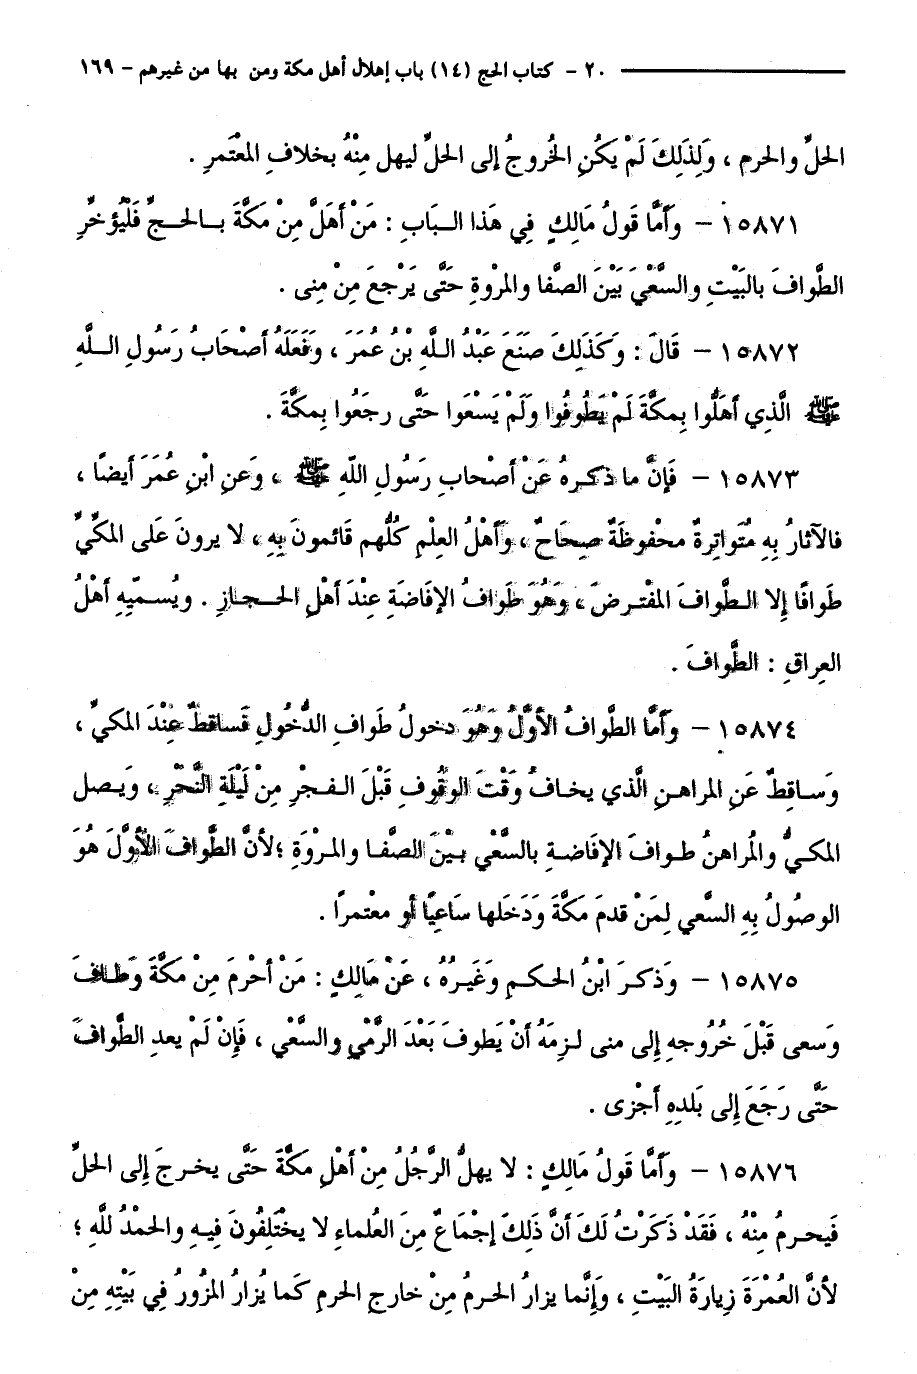 ٢٠ - كتاب الحج (١٤) باب إهلال أهل مكة ومن بها من غيرهم - ١٦٩
الحلِّ والحرم ، وَلِذَلِكَ لَمْ يَكُنِ الخُروجُ إلى الحلِّ ليهل مِنْهُ بخلافِ المعْتَمرِ .
١٥٨٧١ - وَأَمَّا قَولُ مَالِكٍ فِي هَذا الـبَابِ : مَنْ أَهَلَّ مِنْ مَكَّةَ بـالحـجِّ فَلْيُؤَخِّرِ
الطَّوافَ بالبَيْتِ والسَّعْيَ بَيْنَ الصَّفا والمرْوةِ حَتَّى يَرْجعَ مِنْ مِنى .
١٥٨٧٢ - قَالَ : وَكَذَلِكَ صَنَعَ عَبْدُ اللَّهِ بْنُ عُمَرَ ، وَفَعَلَهُ أَصْحَابُ رَسُولِ اللَّهِ
ﷺ الَّذِي أَهَلُّوا بِمكَّةَ لَمْ يَطُوفُوا وَلَمْ يَسْعَوا حَتَّى رجَعُوا بِمكَّةَ .
١٥٨٧٣ - فَإِنَّ ما ذكـرهُ عَنْ أَصْحابِ رَسُولِ اللهِ ﷺ ، وَعَنِ ابْنِ عُمَرَ أَيضًا ،
فالآثارُ بِهِ مُتَواتِرةٌ محْفوظَةٌ صِحَاحٌ ، وَأَهْلُ العلْمِ كُلُّهم قَائمونَ بِهِ ، لا يرونَ عَلى المكيِّ
طَوافًا إِلا الـطَّوافَ المفْتـرضَ ، وَهُوَ طَوافُ الإفَاضَةِ عِنْدَ أهْلِ الحـجـازِ . ويُسـمِّيهِ أهْلُ
العِراقِ : الطَّوافَ .
١٥٨٧٤ - وَأَمَّا الطَّوافُ الأَوَّلُ وَهُوَ دخولُ طَوافِ الدُّخُولِ فَساقطٌ عِنْدَ المكيِّ ،
وَسـاقِطٌ عَنِ المراهـنِ الَّذي يخـافُ وَقْتَ الوُقُوفِ قَبْلَ الـفـجْرِ مِنْ لَيْلَةِ النَّحْرِ ، وَيـصل
المكـيُّ والمُراهنُ طـوافَ الإفَاضـةِ بالسَّعْي بـيْنَ الصَّفـا والمـرْوَةِ ؛لأَنَّ الطَّوافَ الأَوَّلَ هُوَ
الوصُولُ بِهِ السَّعي لِمَنْ قدمَ مَكَّةَ وَدَخَلها سَاعِيًا أَو معْتمرًا .
١٥٨٧٥ - وَذَكـرَ ابْنُ الحـكـمِ وَغَيـرُهُ ، عَنْ مَالِكٍ : مَنْ أَحْرمَ مِنْ مَكَّةَ وَطـافَ
وَسعى قَبْلَ خُرُوجهِ إلى منى لـزمَهُ أَنْ يَطوفَ بَعْدَ الرَّمْيِ والسَّعْيِ ، فَإِنْ لَمْ يعد الطَّوافَ
حَتَّى رَجَعَ إِلى بَلدهِ أَجْزى .
١٥٨٧٦ - وَأَمَّا قَولُ مَالكٍ : لا يهلُّ الرَّجُلُ مِنْ أَهْلِ مكَّةَ حَتَّى يخـرجَ إِلى الحلِّ
فَيحـرمُ مِنْهُ ، فَقَدْ ذَكَرْتُ لَكَ أَنَّ ذَلِكَ إجْمَاعٌ مِنَ العُلماءِ لا يخْتَلِفُونَ فيـهِ والحمْدُ للَّهِ ؛
لأنَّ العُمْرَةَ زِيارَةُ البَيْتِ ، وَإِنَّما يزارُ الحـرمُ مِنْ خارجِ الحرمِ كَما يُزارُ المزُورُ فِي بَيْتِهِ مِنْ